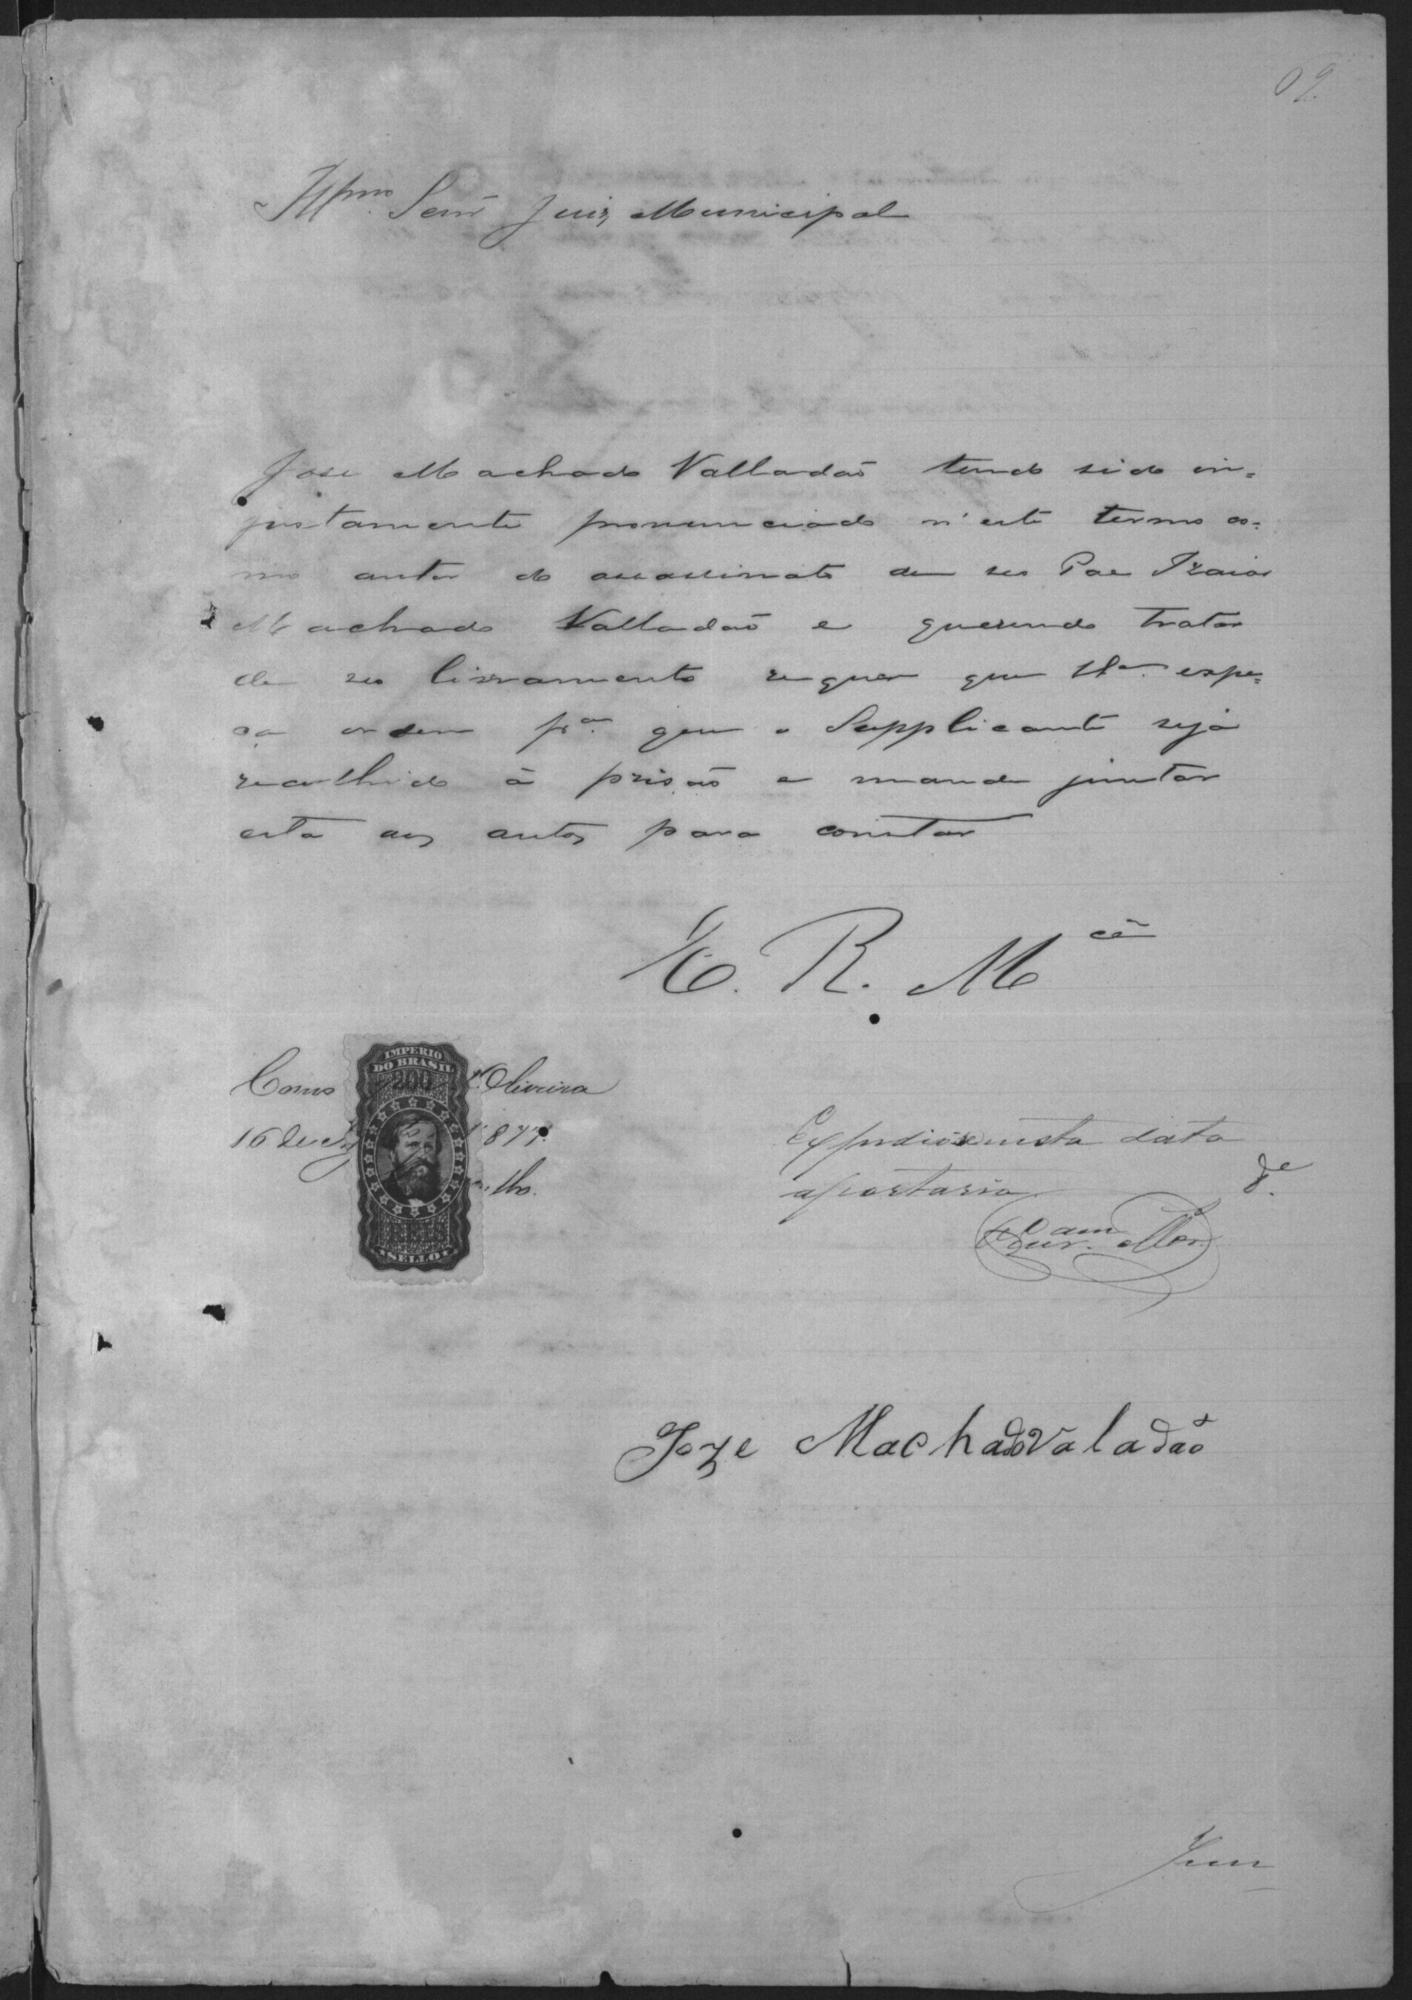 Illmo. Senr Juiz Municipal
Jose Machado Valladão tendo sido in=
justamente pronunciado n'este termo co=
mo autor do assassinato de seo Pae Izaias
Machado Valladão e querendo tratar
de seo livramento requer que Vsa. espe=
ça ordem pa. que o Supplicante seja
recolhido á prisão e mande juntar
esta aos autos para constar
E. R. Mcê
IMPERIO
DO BRASIL
200
Como Oliveira
16 de 1877.
SELLO
Expedio-se nesta data
a portaria.
Joze Machado Valadão
Jun